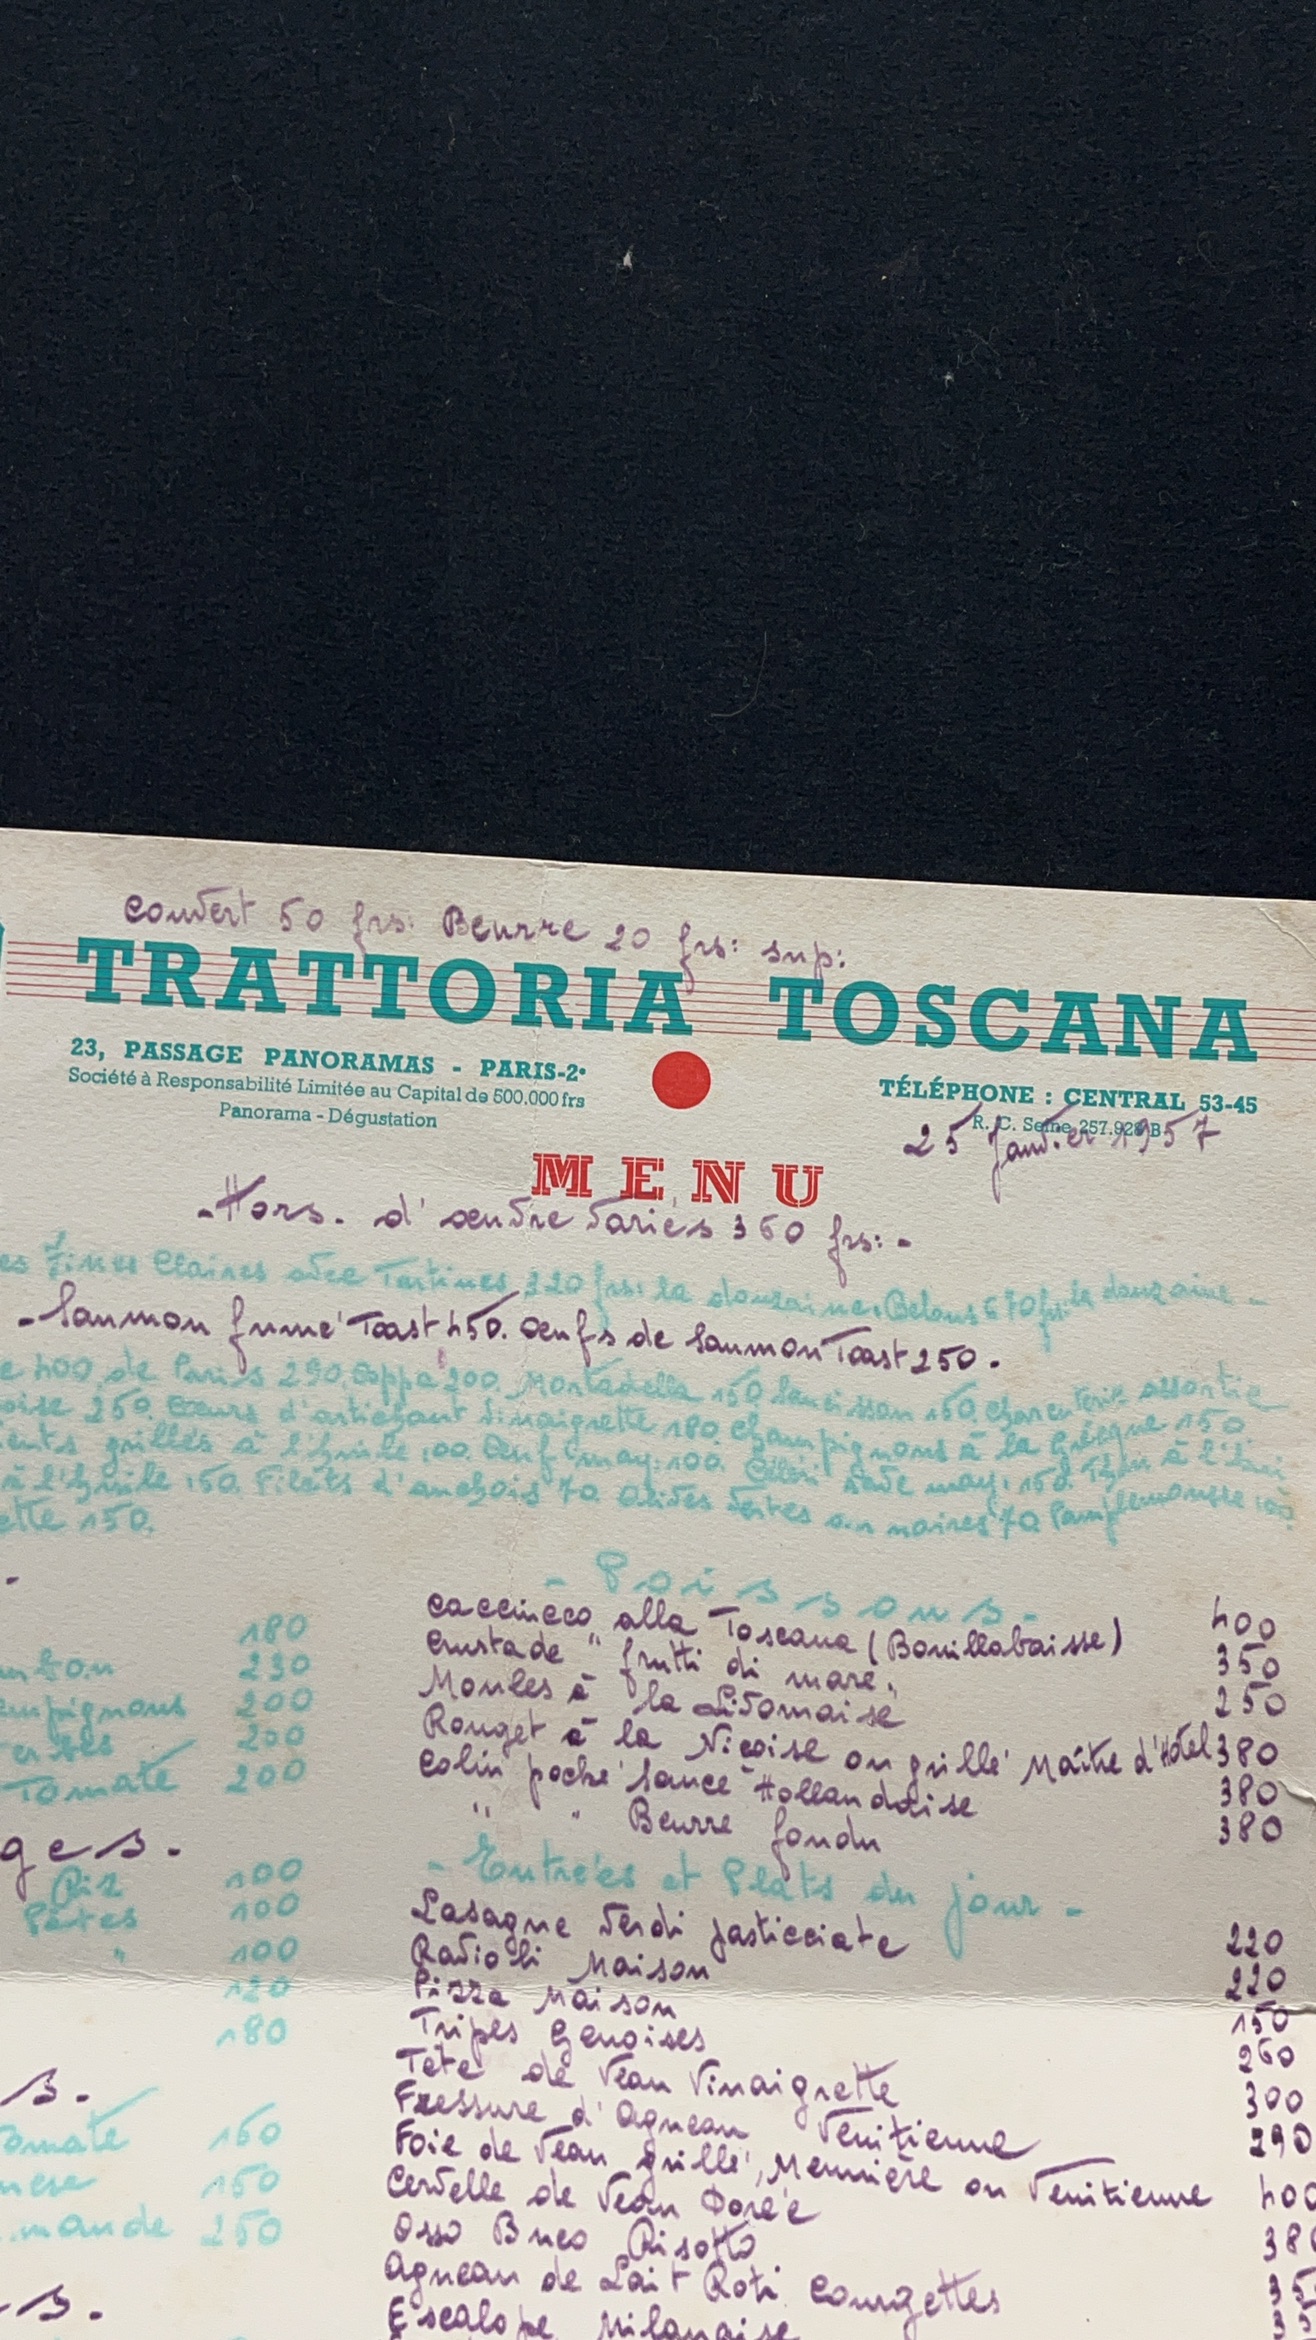 Couvert 50 frs: Beurre 20 frs: sup:
TRATTORIA TOSCANA
23, PASSAGE PANORAMAS - PARIS-2e
Société à Responsabilité Limitée au Capital de 500.000 frs
Panorama - Dégustation
TÉLÉPHONE : CENTRAL 53-45
R. C. Seine 257.928 B
25 Janvier 1957
MENU
- Hors - d'oeuvre Variés 350 frs: -
es Fines Claires avec Tartines 320 frs: la douzaine. Belons 670 frs: la douzaine -
- Saumon fumé Toast 450. Oeufs de Saumon Toast 250 -
e 400. de Paris 290. Coppa 200. Mortadella 150. Saucisson 150. Charcuterie assortie
oise 250. Coeurs d'artichaut Vinaigrette 180. Champignons à la Grècque 150.
ents grillés à l'huile 100. Oeuf may: 100. Céleri Rave may: 150. Thon à l'hui
à l'huile 150. Filets d'anchois 70. Olives Vertes ou noires 70. Pamplemousse 100.
ette 150.
180
230
mpignons 200
200
Tomate 200
ges -
Riz 100
Pâtes 100
" 100
120
180
s -
omate 160
150
mande 250
s -
- Poissons -
Cacciucco alla Toscana (Bouillabaisse) 400
Crustade " frutti di mare. 350
Moules à la Livornaise 250
Rouget à la Niçoise ou grillé Maître d'Hôtel 380
Colin poché Sauce Hollandaise 380
" " Beurre fondu 380
- Entrées et Plats du jour -
Lasagne Verdi pasticciate 220
Ravioli Maison 220
Pizza Maison 150
Tripes Génoises 260
Tête de Veau Vinaigrette 300
Fressure d'Agneau Venitienne 290
Foie de Veau grillé, Meunière ou Venitienne 400
Cervelle de Veau Dorée 380
Osso Buco Risotto 35
Agneau de Lait Roti Courgettes 35
Escalope Milanaise